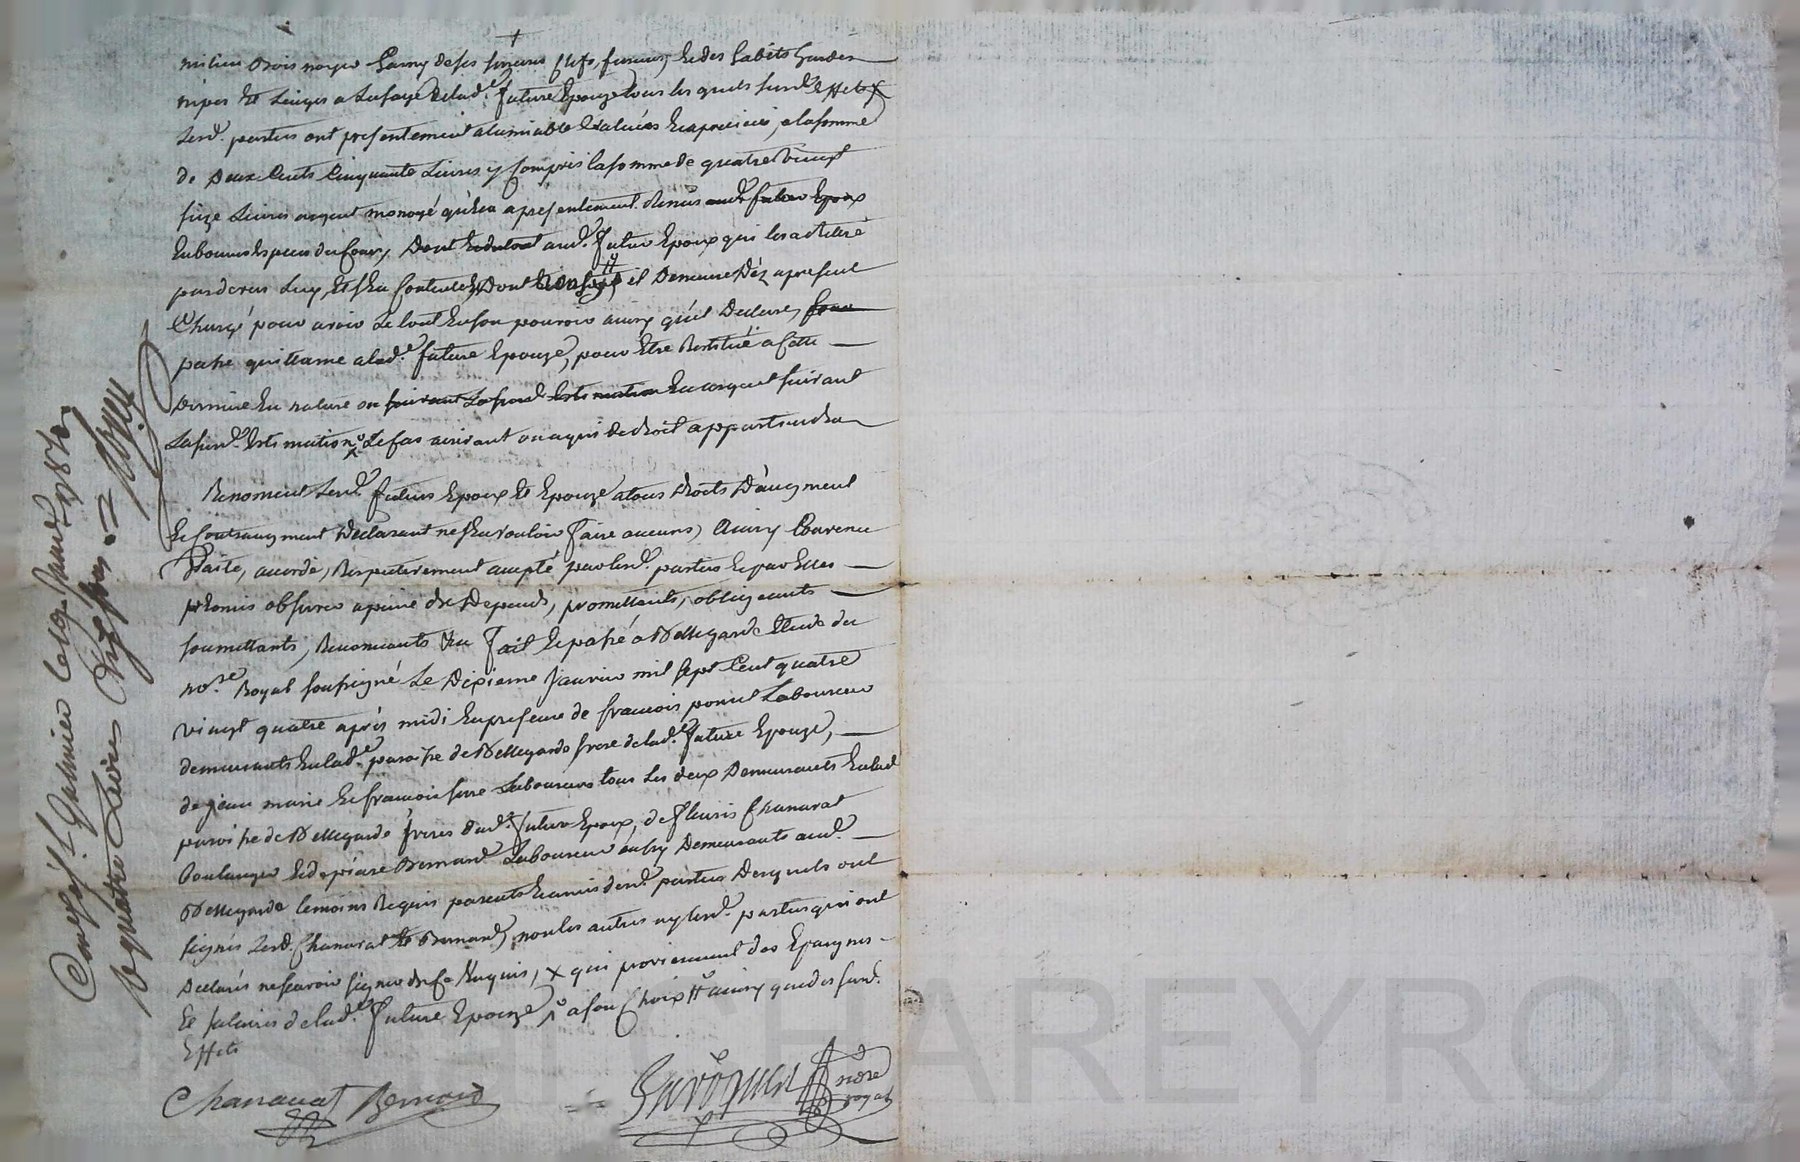 milieu Bois noyer Garny de ses serrures clefs, ferrures, Et des habits hardes
nipes Et Linges a Lusage De lad.e future Epouze tous les quels surd.s Effets x
Lesd. parties ont presentement alamiable Evalués Et apreciés, a la somme
de Deux Cents Cinquante Livres y Compris la somme de quatre vingt
size Livres argent monoyé qu'elle a presentement remis aud. futur Epoux
En bonnes Especes du Cours, Dont aud. futur Epoux qui les a retiré
pardevers Luy, Et s'en Contente, Dont il Demeure Déz apresent
Chargé pour avoir Le tout En son pouvoir ainsy qu'il Declare,
passe quittance a lad.e future Epouze, pour Etre Restitué a Cette
derniere En nature ou suivant La surd. Estimation En argent suivant
La surd. Estimation, Le Cas arrivant ou a qui de droit appartiendra
Renoncent Lesd. futurs Epoux Et Epouze a tous droits D'augment
Et Contraugment Declarant ne s'En vouloir faire aucuns, Ainsy Convenu
Traité, accordé, Respectivement accepté par lesd. parties Et par Elles
promis observer a peine de Depends, promettants, obligeants
soumettants, Renonceants &a fait Et passé a Bellegarde Etude du
no.re Royal soussigné Le Dixieme Janvier mil sept Cent quatre
vingt quatre après midi En presence de francois poncet Laboureur
demeurants En lad.e paroisse de Bellegarde frere de lad.e future Epouze,
de jean marie Et francois serre Laboureurs tous Les deux Demeurants En lad.
paroisse de Bellegarde freres dud. futur Epoux, de fleuris Chanavat
Boulanger Et de pierre Bernard Laboureur aussy Demeurants aud.
Bellegarde temoins Requis parents Et amis desd. parties Desquels ont
signés Lesd. Chanavat Et Bernard, non les autres ny lesd. parties qui ont
Declarés ne scavoir signer de Ce Enquis, x qui proviennent des Epargnes
Et salaires de lad.e future Epouze, a son Choix # ainsy que des surd.
Effets
Chanavat Bernard
no.re
royal